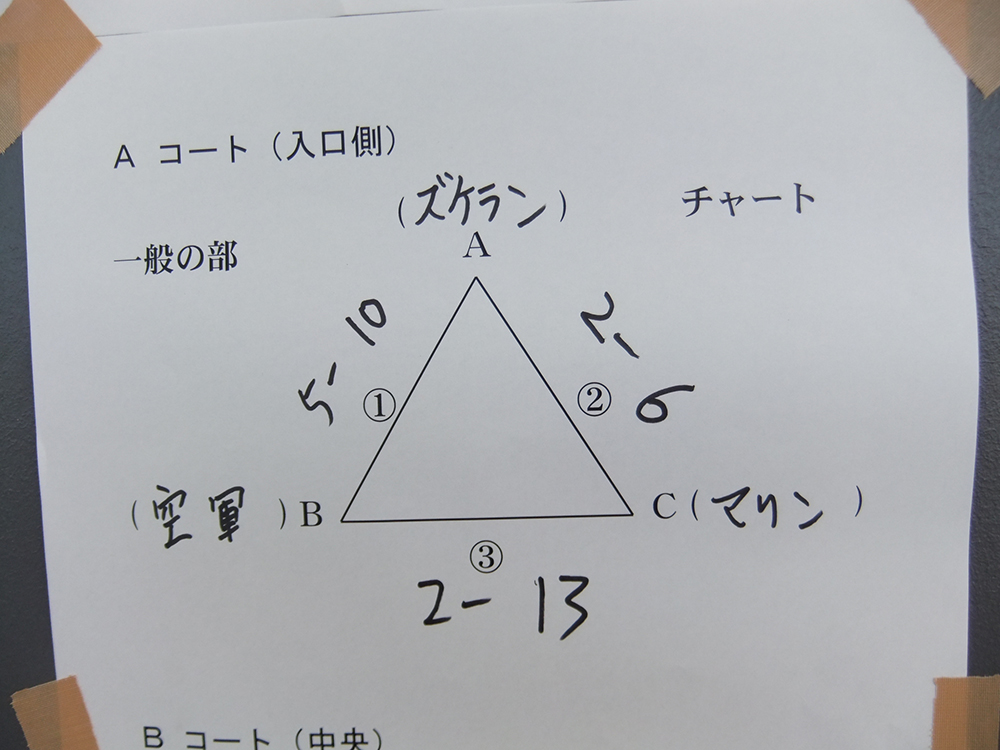 A コート（入口側）
（ズケラン） チャート
一般の部
A
5-10 ① ② 2-6
（空軍）B C（マリン）
③
2-13
B コート（中央）